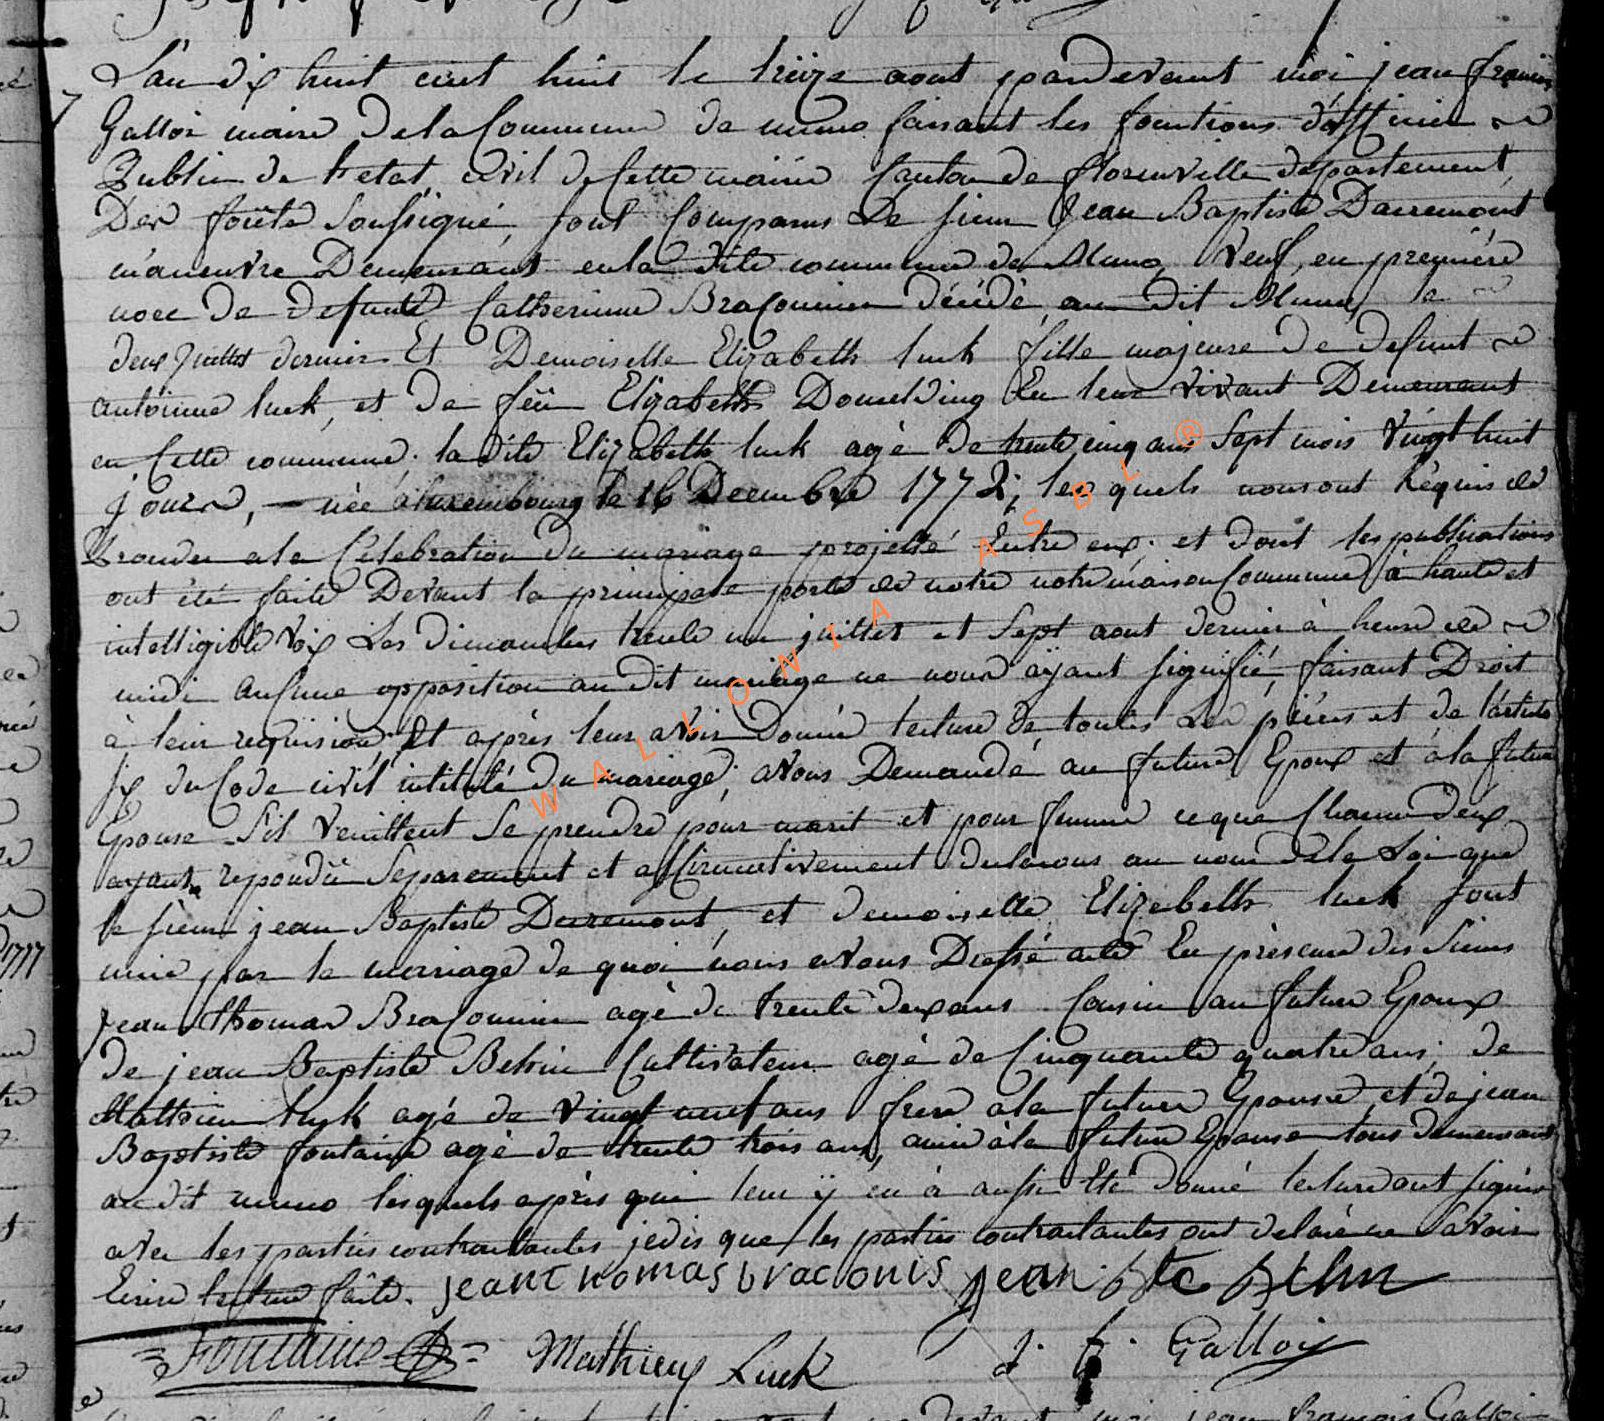 L'an dix huit cent huit le treize aout pardevant moi jean francois
Galloi maire de la Commune de muno faisant les fonctions d'officier
Public de l'etat civil de Cette mairie Canton de florenville departement
Des forêts soussigné, sont Comparus Le sieur Jean Baptiste Darremont
manœuvre Demeurant en la dite commune de Muno, Veuf, en première
noce de defunte Catherinne Braconnier décédé au dit Muno, le
deux Juillet dernier Et Demoiselle Elizabeth luck fille majeure de defunt
antoinne luck, et de feüe Elizabeth Domelding En leur vivant Demeurant
en Cette commune, la dite Elizabeth luck agé de trente cinq ans Sept mois Vingt huit
jours, — née à luxembourg le 16 Decembre 1772; les quels nous ont Réquis de
Proceder a la Célebration du mariage projetté Entre eux; et dont les publications
ont été faite Devant la principale porte de notre notre maison Commune à haute et
intelligible voix Les dimanches trente un juillet et Sept aout dernier à heure de
midi Aucune opposition au dit mariage ne nous aÿant signifié, faisant Droit
à leur requision; Et après leur avoir Donné lecture de toutes Les pièces et de l'article
six du Code civil intitulé du mariage; avons Demandé au future Epoux et à la future
Epouse S'ils veuillent Se prendre pour marit et pour femme ce que Chacun d'eux
ayant repondü Séparement et affirmativement declarons au nom de la Loi que
le sieur jean Baptiste Darremont, et demoiselle Elizabeth luck sont
unie par le mariage de quoi nous avons Dressé acte En présence des Sieurs
Jean thomas Braconnier agé de trente deux ans Cousin au future Epoux
de jean Baptiste Cultivateur agé de Cinquante quatre ans; de
Matthieu luck agé de vingt neuf ans frere a la future Epouse, et de jean
Baptiste fontaine agé de trente trois ans, ami à la future Epouse tous demeurant
au dit muno lesquels après qui leur ÿ en à aussi Eté donné lecture ont signés
avec les parties contractantes je dis que les parties contractantes ont delaré ne Savoir
Ecrire lecture faite. jean thomas braconis jean bte
Fontaine Mathieu Luck J. f. Galloij
WALLONIA ASBL ®